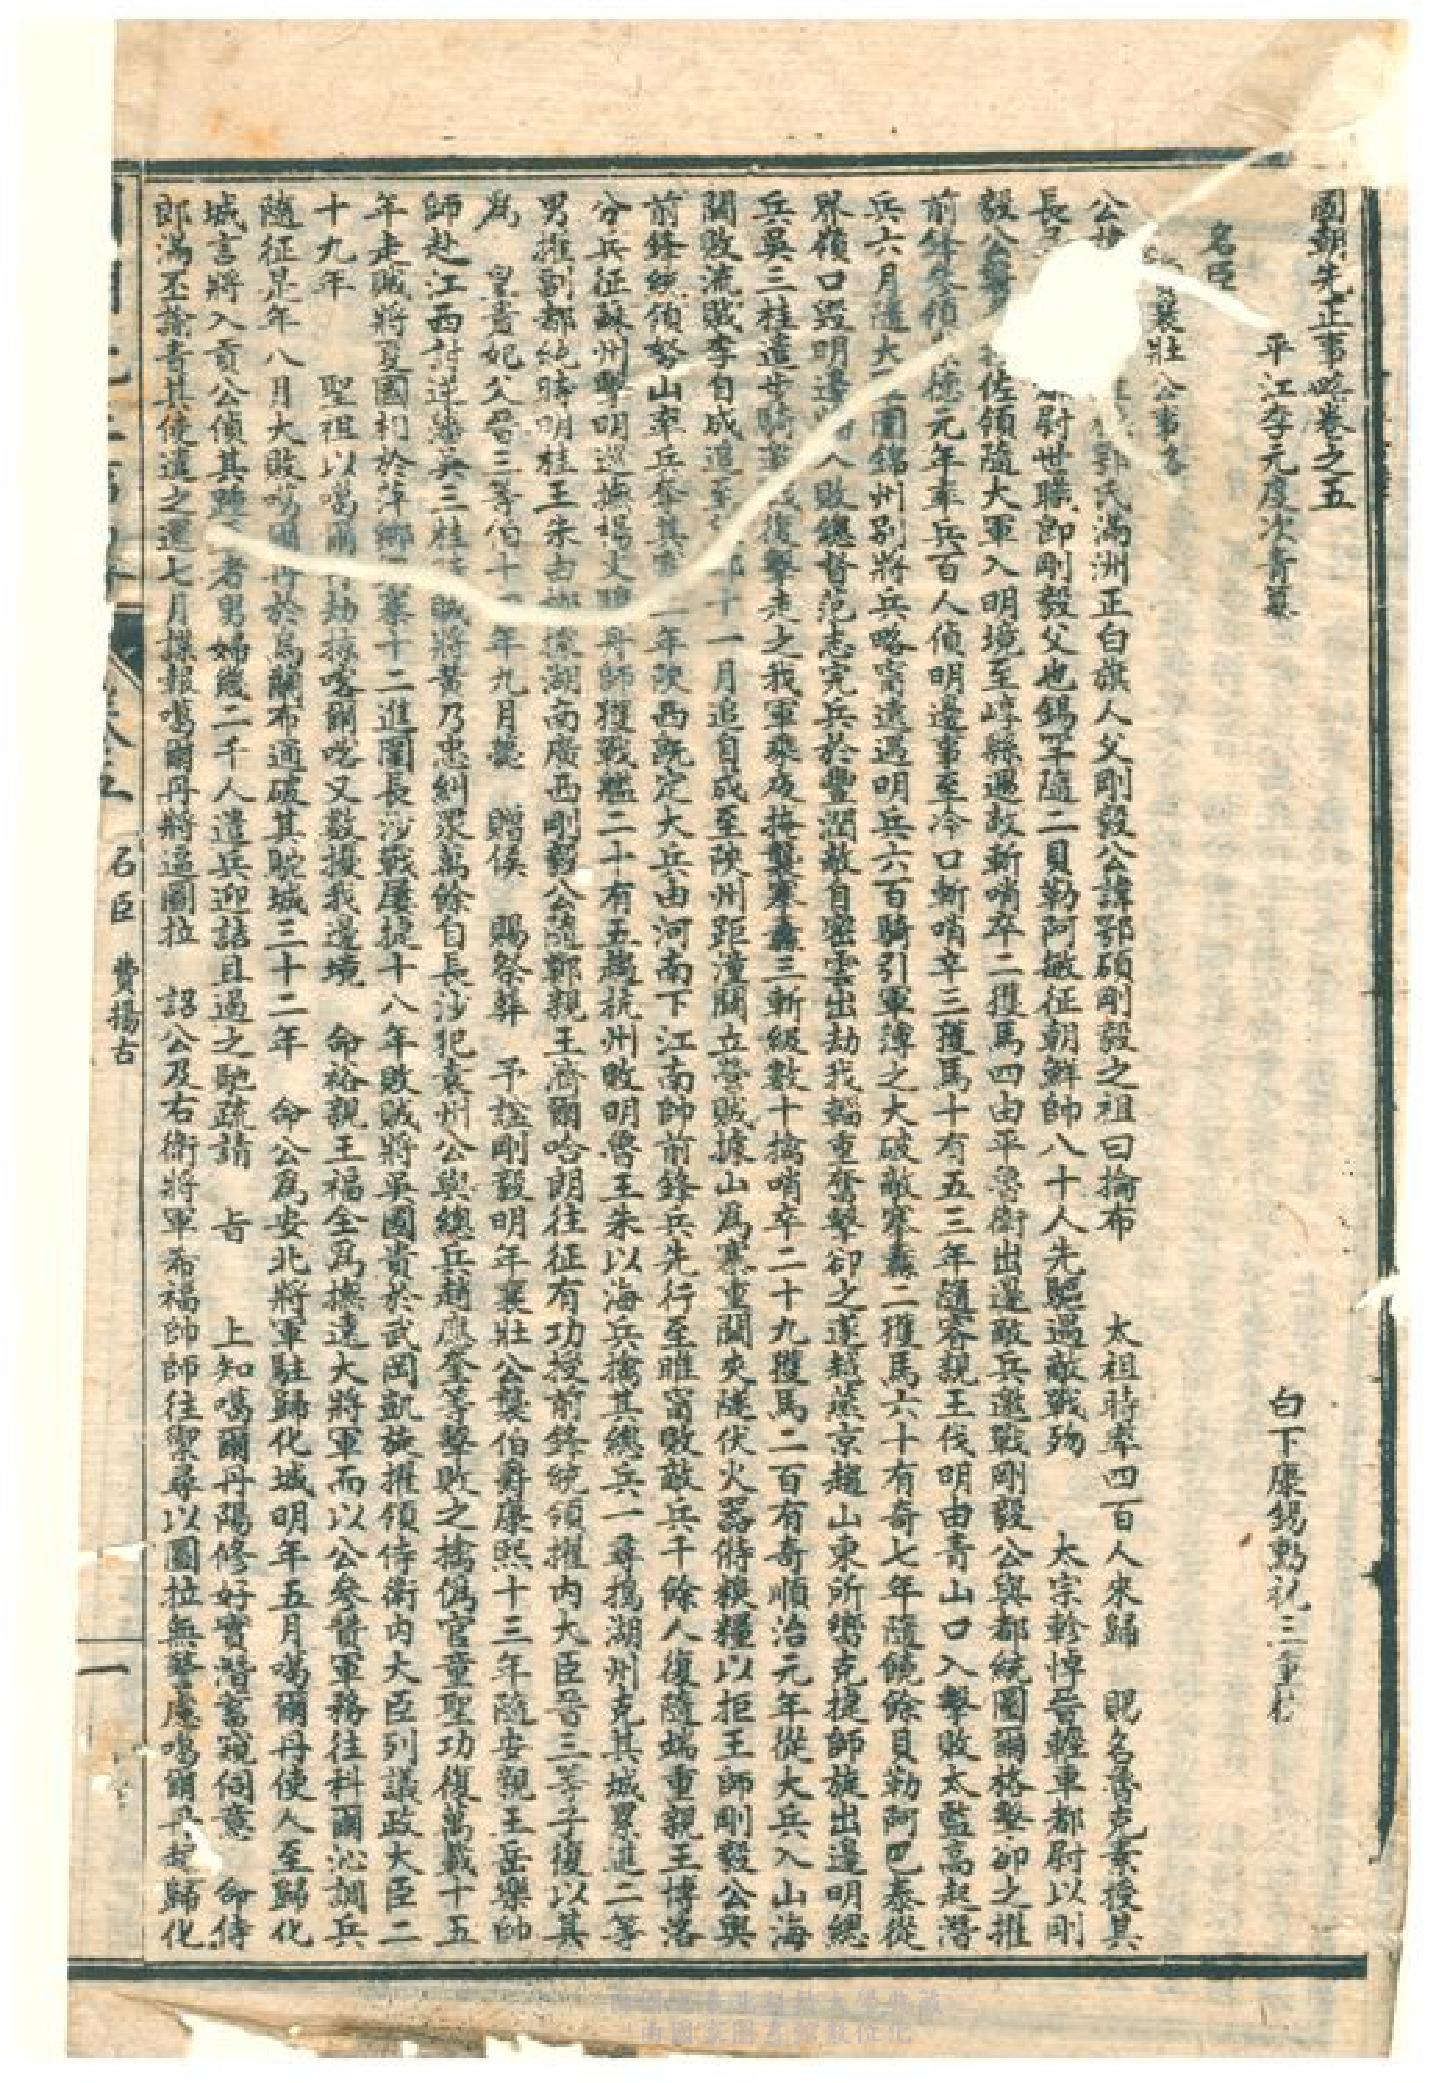 國朝先正事略卷之五
平江李元度次青纂
白下康錫勲祝三重校
名臣
襄壯公事略
公 鄂氏滿洲正白旗人父剛毅公諱鄂碩剛毅之祖曰掄布 太祖時率四百人來歸 賜名魯克素授其
長 尉世職卽剛毅父也錫罕隨二貝勒阿敏征朝鮮帥八十人先驅遇敵戰歿 太宗軫悼晉輕車都尉以剛
毅公 佐領隨大軍入明境至崞縣遇敵斬哨卒二獲馬四由平魯衛出邊敵兵邀戰剛毅公與都統圖爾格擊卻之擢
前鋒參領 德元年率兵百人偵明邊事至冷口斬哨卒三獲馬十有五三年隨睿親王伐明由青山口入擊敗太監高起潛
兵六月隨大 圍錦州別將兵略甯遠遇明兵六百騎引軍薄之大破敵寨纛二獲馬六十有奇七年隨饒餘貝勒阿巴泰從
界嶺口毀明邊 人敗總督范志完兵於豐潤敵自密雲出劫我輜重奮擊卻之遂越燕京趨山東所嚮克捷師旋出邊明總
兵吳三桂遣步騎 復擊走之我軍乘夜掩襲寨纛三斬級數十擒哨卒二十九獲馬二百有奇順治元年從大兵入山海
關敗流賊李自成追至 十一月追自成至陝州距潼關立營賊據山爲寨重關夾隧伏火器儲糗糧以拒王師剛毅公與
前鋒統領努山率兵奪其 二年陝西既定大兵由河南下江南帥前鋒兵先行至睢甯敗敵兵千餘人復隨端重親王博洛
分兵征蘇州擊明巡撫楊文驄舟師獲戰艦二十有五趨杭州敗明魯王朱以海兵擒其總兵一尋搗湖州克其城累進二等
男擢副都統時明桂王朱由榔據湖南廣西剛毅公隨鄭親王濟爾哈朗往征有功授前鋒統領擢內大臣晉三等子復以其
爲 皇貴妃父晉三等伯十四年九月薨 贈侯 賜祭葬 予諡剛毅明年襄壯公襲伯爵康熙十三年隨安親王岳樂帥
師赴江西討逆藩吳三桂時賊將黃乃忠糾衆萬餘自長沙犯袁州公與總兵趙應奎等擊敗之擒僞官童聖功復萬載十五
年走賊將夏國相於萍鄉 寨十二進圍長沙戰屢捷十八年敗賊將吳國貴於武岡凱旋擢領侍衛內大臣列議政大臣二
十九年 聖祖以噶爾丹劫掠喀爾喀又數擾我邊境 命裕親王福全爲撫遠大將軍而以公參贊軍務往科爾沁調兵
隨征是年八月大敗噶爾丹於烏蘭布通破其駝城三十二年 命公爲安北將軍駐歸化城明年五月噶爾丹使人至歸化
城言將入貢公偵其踵至者男婦幾二千人遣兵迎詰且遏之馳疏請 旨 上知噶爾丹陽修好實潛蓄窺伺意 命侍
郎滿丕諭責其使遣之還七月諜報噶爾丹將逼圖拉 詔公及右衛將軍希福帥師往禦尋以圖拉無警慮噶爾丹趨歸化
名臣 費揚古
一